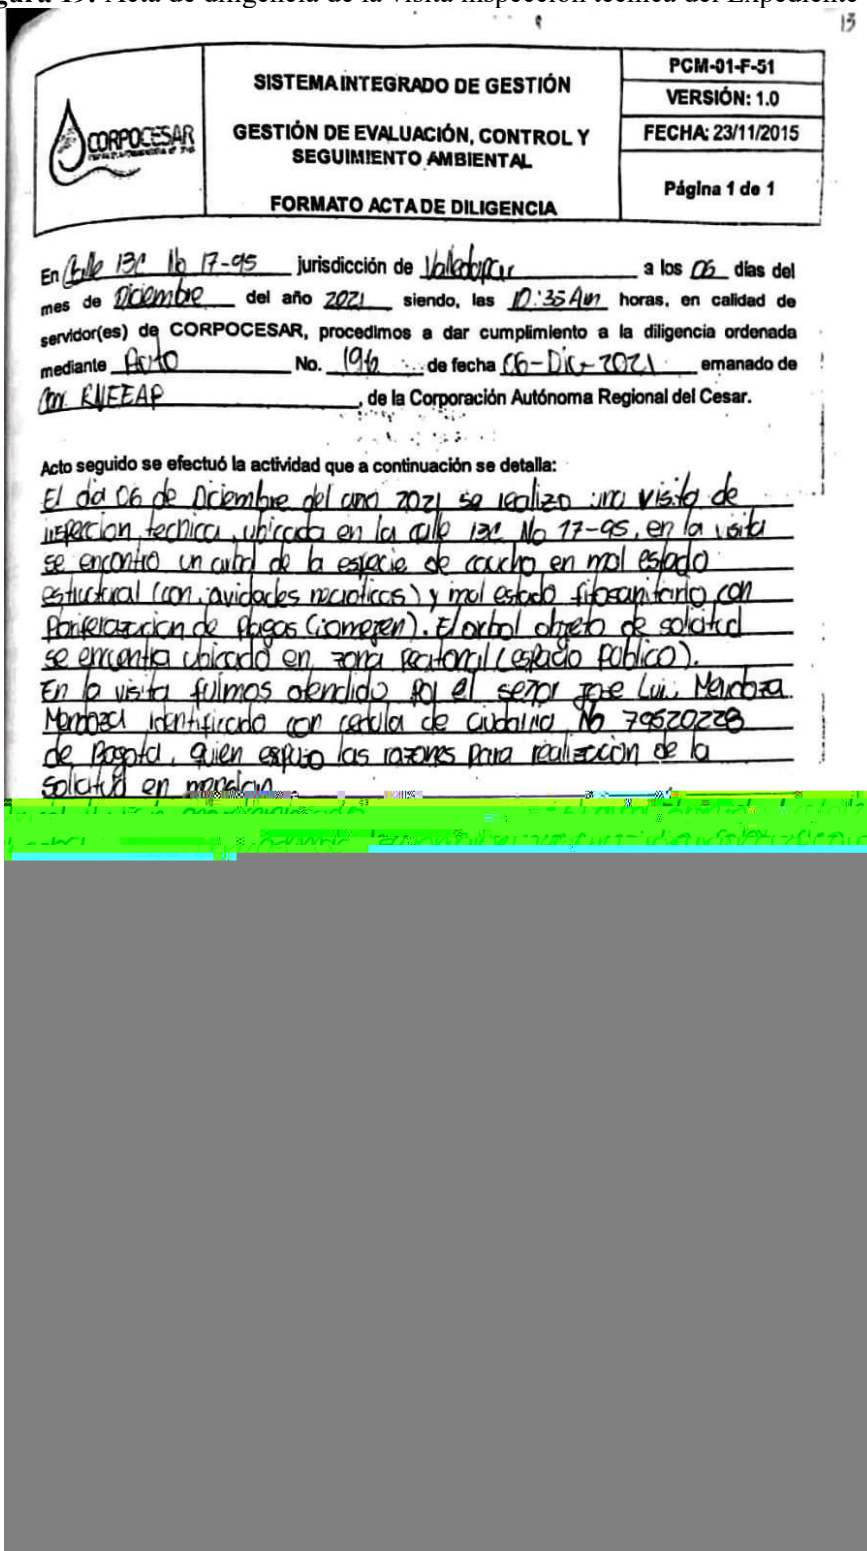 gura 19. Acta de diligencia de la visita inspección técnica del Expediente
13
CORPOCESAR
SISTEMA INTEGRADO DE GESTIÓN
GESTIÓN DE EVALUACIÓN, CONTROL Y
SEGUIMIENTO AMBIENTAL
FORMATO ACTA DE DILIGENCIA
PCM-01-F-51
VERSIÓN: 1.0
FECHA: 23/11/2015
Página 1 de 1
En Calle 13C No 17-95 jurisdicción de Valledupar a los 06 días del
mes de Diciembre del año 2021 siendo, las 10:35 Am horas, en calidad de
servidor(es) de CORPOCESAR, procedimos a dar cumplimiento a la diligencia ordenada
mediante Auto No. 196 de fecha 06-Dic-2021 emanado de
, de la Corporación Autónoma Regional del Cesar.
Acto seguido se efectuó la actividad que a continuación se detalla:
El dia 06 de Diciembre del ano 2021 se realizo una visita de
inspeccion tecnica, ubicada en la calle 13C No 17-95, en la visita
se encontro un arbol de la especie de caucho en mal estado
estructural (con cavidades necroticas) y mal estado fitosanitario con
de plagas (comegen). El arbol objeto de solicitud
se encuentra ubicado en zona peatonal (espacio publico).
En la visita fuimos atendido por el señor Jose Luis Mendoza
Mendoza identificado con cedula de No 79520228
de Bogota, quien expuso las razones para realizacion de la
solicitud en mencion